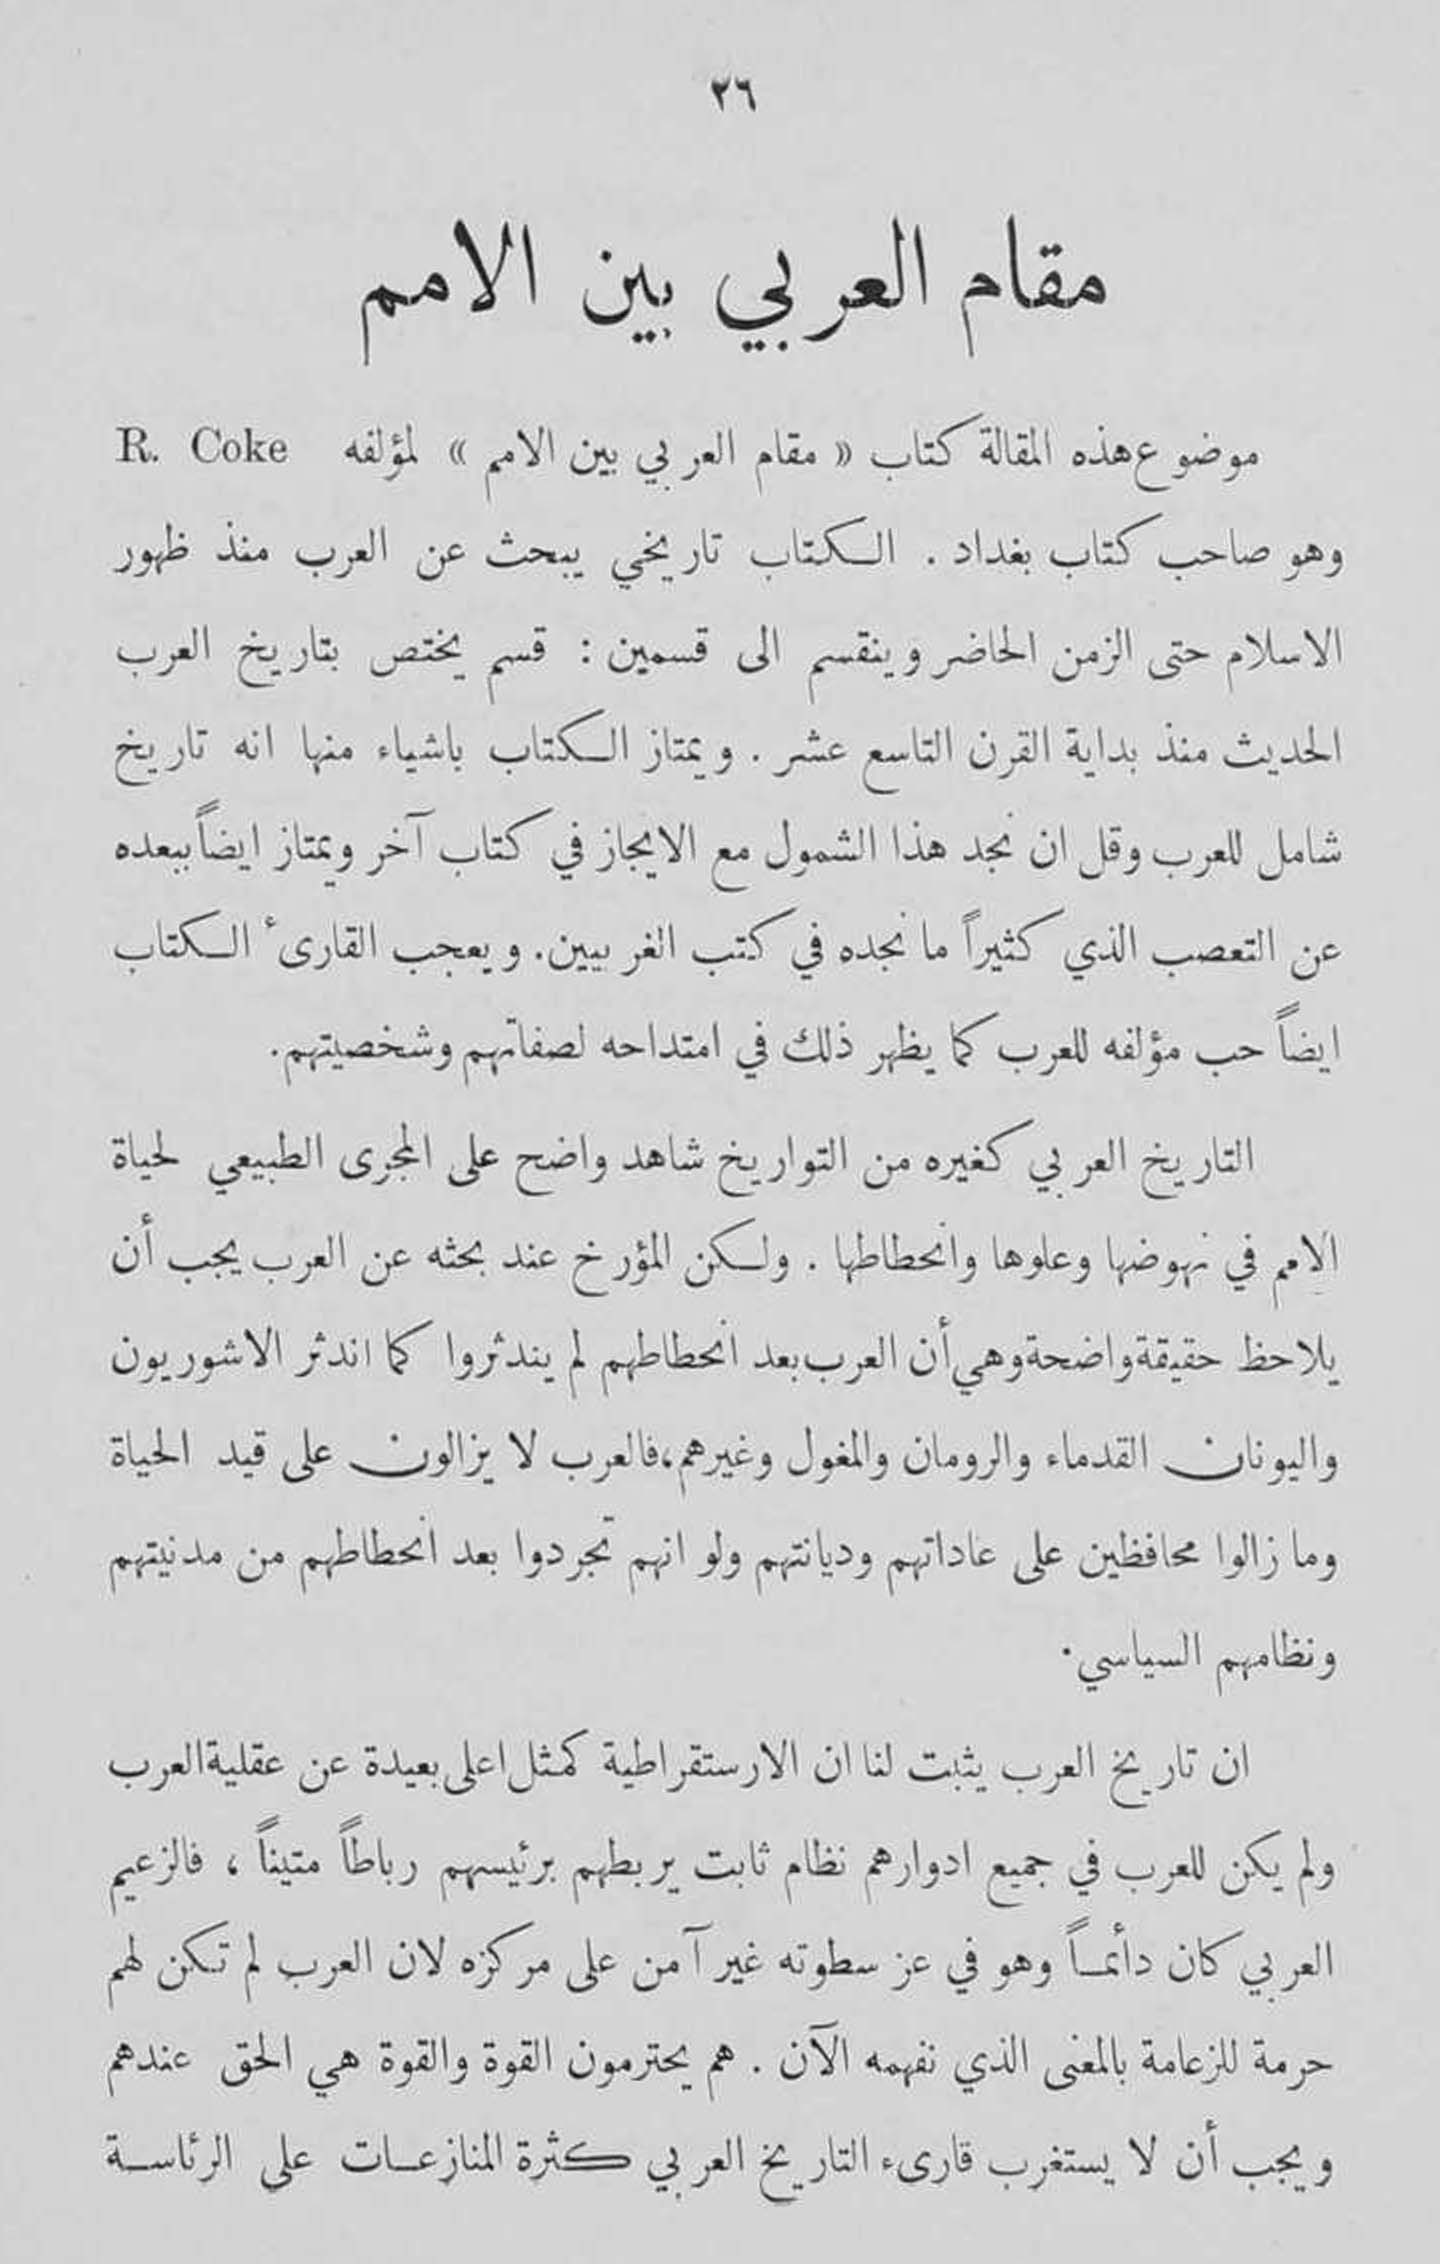 ٢٦
مقام العربي بين الامم
موضوع هذه المقالة كتاب « مقام العربي بين الامم » لمؤلفه R. Coke
وهو صاحب كتاب بغداد . الكتاب تاريخي يبحث عن العرب منذ ظهور
الاسلام حتى الزمن الحاضر وينقسم الى قسمين : قسم يختص بتاريخ العرب
الحديث منذ بداية القرن التاسع عشر . ويمتاز الكتاب باشياء منها انه تاريخ
شامل للعرب وقل ان نجد هذا الشمول مع الايجاز في كتاب آخر ويمتاز ايضاً ببعده
عن التعصب الذي كثيراً ما نجده في كتب الغربيين. ويعجب القارىء الكتاب
ايضاً حب مؤلفه للعرب كما يظهر ذلك في امتداحه لصفاتهم وشخصيتهم.
التاريخ العربي كغيره من التواريخ شاهد واضح على المجرى الطبيعي لحياة
الامم في نهوضها وعلوها وانحطاطها . ولكن المؤرخ عند بحثه عن العرب يجب أن
يلاحظ حقيقة واضحة وهي أن العرب بعد انحطاطهم لم يندثروا كما اندثر الاشوريون
واليونان القدماء والرومان والمغول وغيرهم، فالعرب لا يزالون على قيد الحياة
وما زالوا محافظين على عاداتهم وديانتهم ولو انهم تجردوا بعد انحطاطهم من مدنيتهم
ونظامهم السياسي.
ان تاريخ العرب يثبت لنا ان الارستقراطية كمثل اعلى بعيدة عن عقلية العرب
ولم يكن للعرب في جميع ادوارهم نظام ثابت يربطهم برئيسهم رباطاً متيناً ، فالزعيم
العربي كان دأئماً وهو في عز سطوته غير آمن على مركزه لان العرب لم تكن لهم
حرمة للزعامة بالمعنى الذي نفهمه الآن . هم يحترمون القوة والقوة هي الحق عندهم
ويجب أن لا يستغرب قارىء التاريخ العربي كثرة المنازعات على الرئاسة